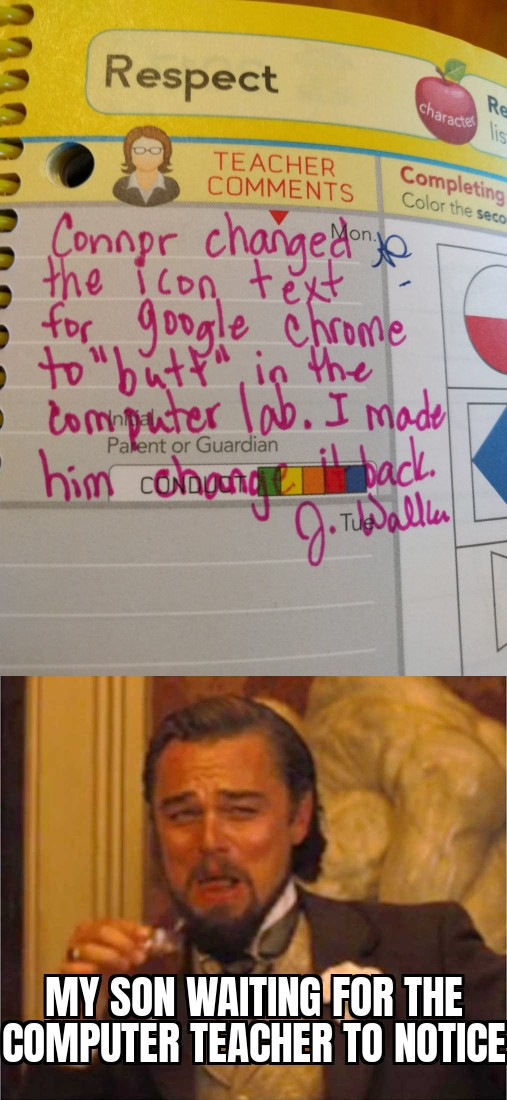 Respect
character
Re
lis
TEACHER
COMMENTS
Completing
Color the seco
Mon.
Connor changed
the icon text
for google chrome
to "butt" in the
computer lab. I made
Initial
Parent or Guardian
him change it back.
CONDUCT
J. Walker
Tue
MY SON WAITING FOR THE
COMPUTER TEACHER TO NOTICE